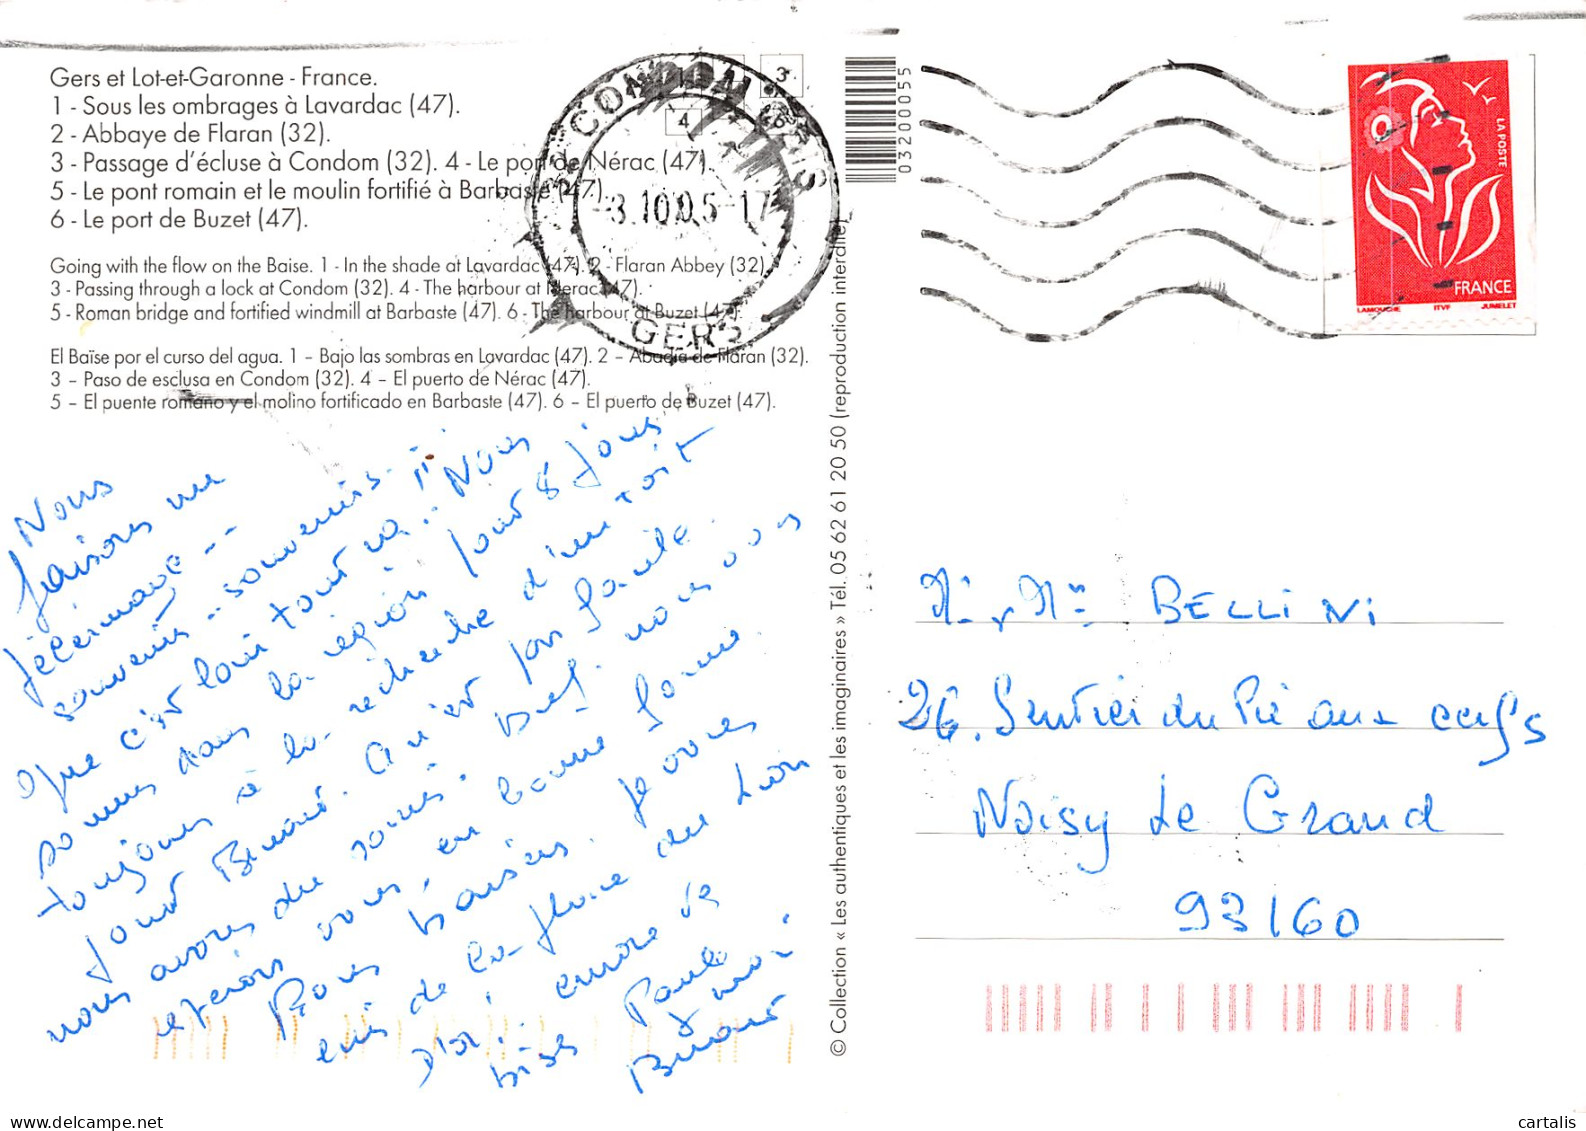 Gers et Lot-et-Garonne - France.
1 - Sous les ombrages à Lavardac (47).
2 - Abbaye de Flaran (32).
3 - Passage d'écluse à Condom (32). 4 - Le port de Nérac (47).
5 - Le pont romain et le moulin fortifié à Barbaste (47).
6 - Le port de Buzet (47).
Going with the flow on the Baise. 1 - In the shade at Lavardac (47). 2 - Flaran Abbey (32).
3 - Passing through a lock at Condom (32). 4 - The harbour at Nerac (47).
5 - Roman bridge and fortified windmill at Barbaste (47). 6 - The harbour at Buzet (47).
El Baïse por el curso del agua. 1 - Bajo las sombras en Lavardac (47). 2 - Abadia de Flaran (32).
3 - Paso de esclusa en Condom (32). 4 - El puerto de Nérac (47).
5 - El puente romano y el molino fortificado en Barbaste (47). 6 - El puerto de Buzet (47).
1
3
4
CONDOM
GERS
3.10 05-17
Nous
faisons un
pélérinage --
souvenirs .. souvenirs. !!
Que c'est loin tout ça .. Nous
sommes dans la région pour 8 jours
toujours à la recherche d'un toit
pour Benoit. Ce n'est pas facile.
nous avons du souci. Bref. nous vous
espérons vous, en bonne forme.
Bons baisers. Je vous
écris de la place du Lion
d'or! encore de
bises Paule
Benoit
© Collection « Les authentiques et les imaginaires » Tél. 05 62 61 20 50 (reproduction interdite)
03200055
LA POSTE
FRANCE
LAMOUCHE ITVF JUMELET
Mr. Mme BELLINI
26. Sentier du Pié aux cerfs
Noisy Le Grand
93160
cartalis